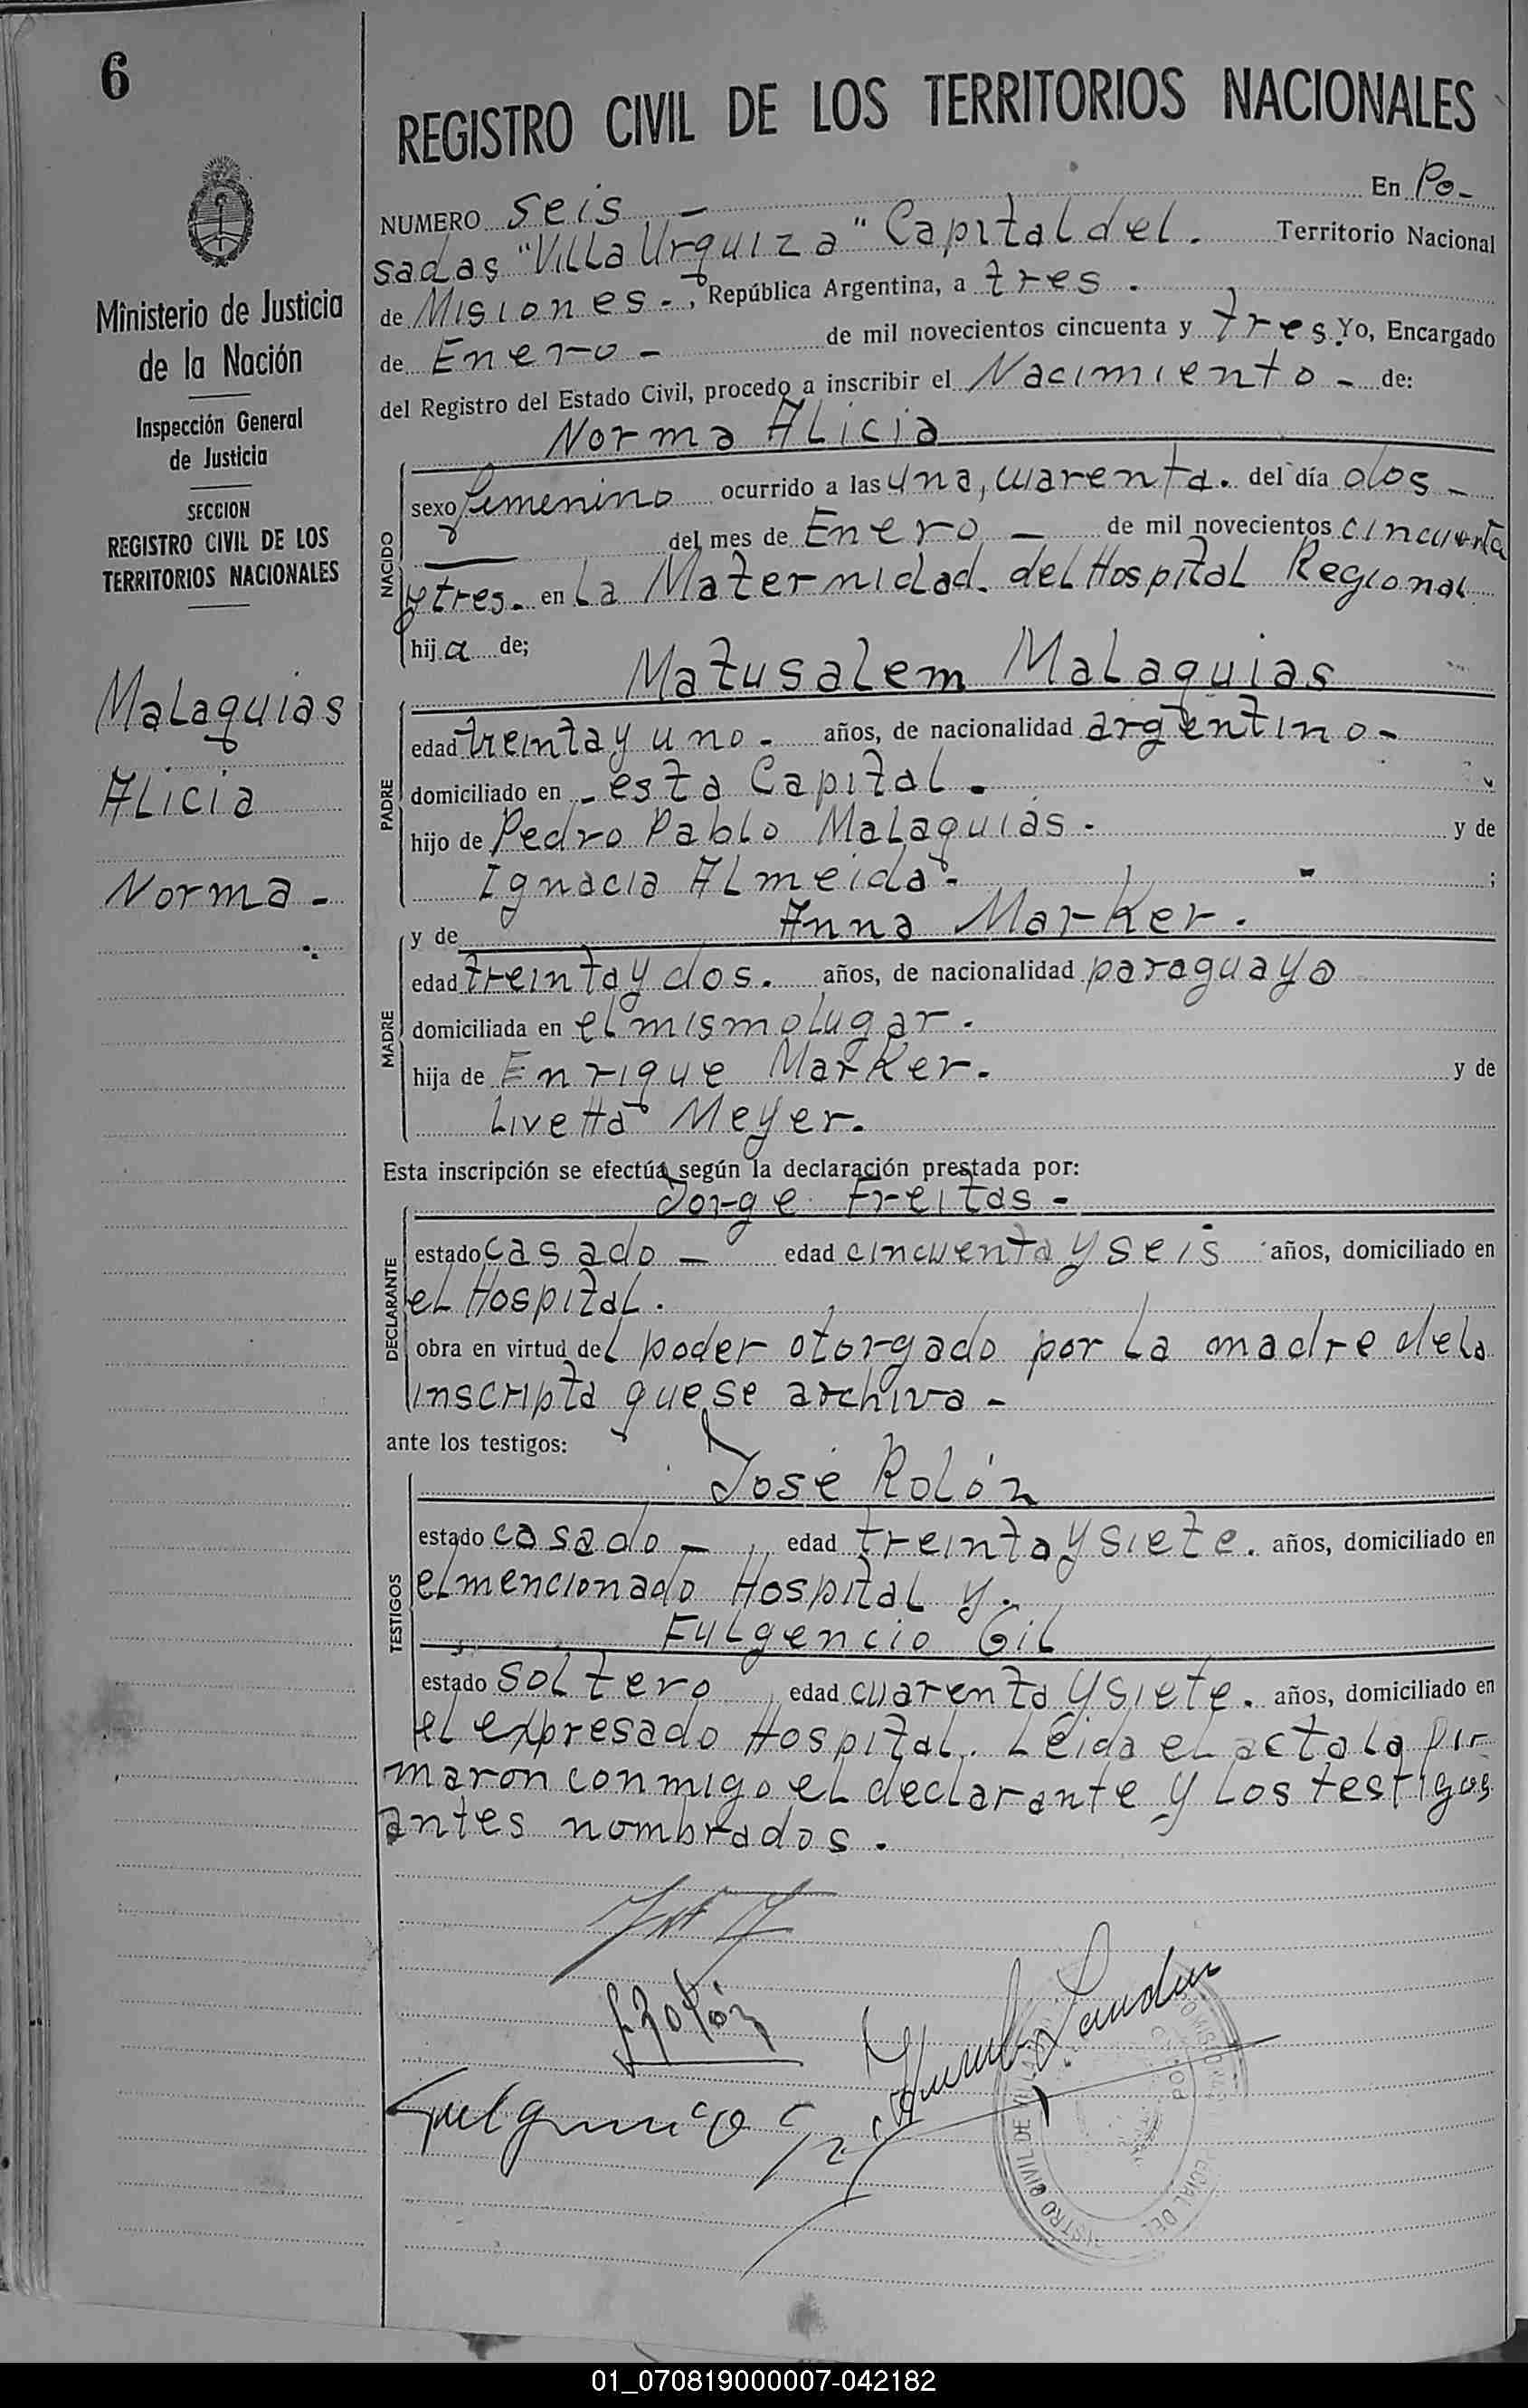 6
REGISTRO CIVIL DE LOS TERRITORIOS NACIONALES
Ministerio de Justicia
de la Nación
Inspección General
de Justicia
SECCION
REGISTRO CIVIL DE LOS
TERRITORIOS NACIONALES
Malaquias
Alicia
Norma -
NUMERO seis - En Po-
sadas "Villa Urquiza" Capital del. Territorio Nacional
de Misiones -, República Argentina, a tres.
de Enero - de mil novecientos cincuenta y tres. Yo, Encargado
del Registro del Estado Civil, procedo a inscribir el Nacimiento - de:
Norma Alicia
NACIDO
sexo femenino ocurrido a las una, cuarenta. del día dos -
del mes de Enero - de mil novecientos cincuenta
y tres. en la Maternidad. del Hospital Regional
hija de;
Matusalem Malaquias
PADRE
edad treinta y uno - años, de nacionalidad argentino -
domiciliado en - esta Capital.
hijo de Pedro Pablo Malaquias - y de
Ignacia Almeida - ;
y de Anna Marker.
MADRE
edad treinta y dos. años, de nacionalidad paraguaya
domiciliada en el mismo lugar.
hija de Enrique Marker. y de
Livetta Meyer.
Esta inscripción se efectúa según la declaración prestada por:
Jorge Freitas -
DECLARANTE
estado casado - edad cincuenta y seis años, domiciliado en
el Hospital.
obra en virtud del poder otorgado por la madre de la
inscripta que se archiva -
ante los testigos:
José Rolón
TESTIGOS
estado casado - edad treinta y siete. años, domiciliado en
el mencionado Hospital y.
Fulgencio Gil
estado soltero edad cuarenta y siete. años, domiciliado en
el expresado Hospital. Leida el acta la fir-
maron conmigo el declarante y los testigos
antes nombrados.
Rolón
Fulgencio Gil
01_070819000007-042182